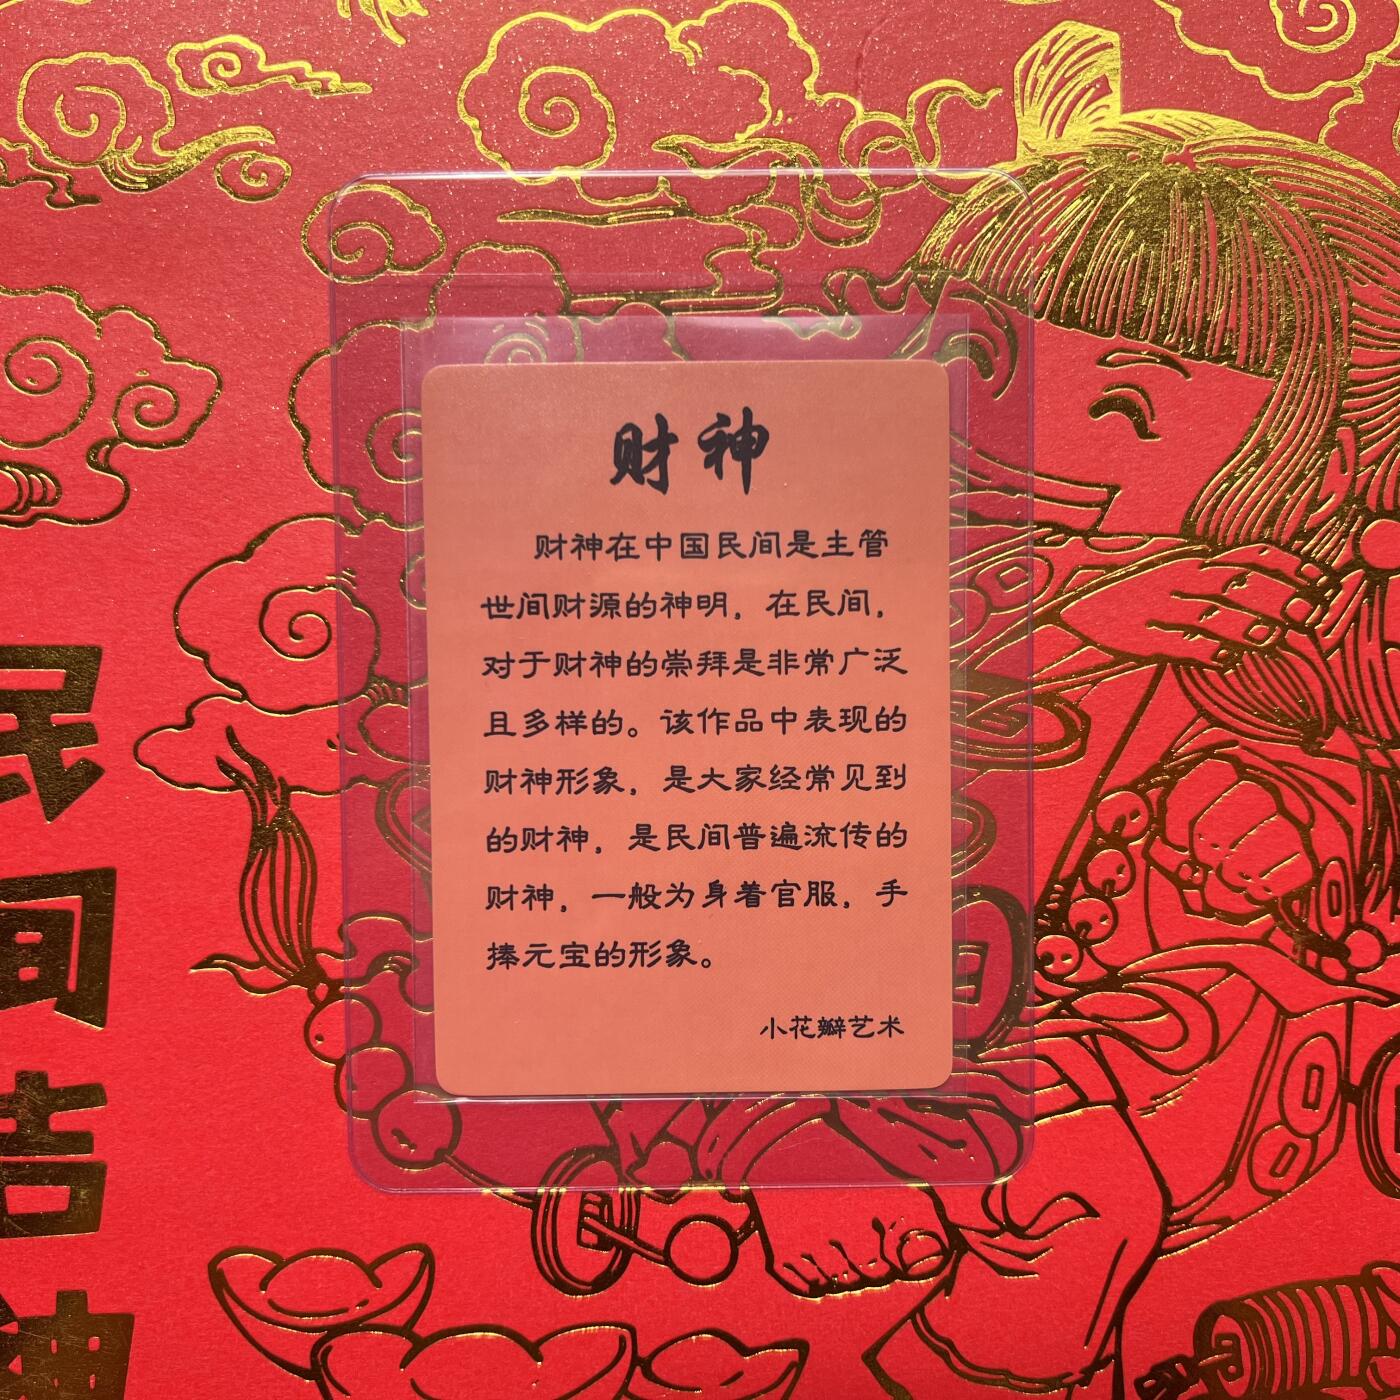 财神
财神在中国民间是主管
世间财源的神明，在民间，
对于财神的崇拜是非常广泛
且多样的。该作品中表现的
财神形象，是大家经常见到
的财神，是民间普遍流传的
财神，一般为身着官服，手
捧元宝的形象。
小花瓣艺术
民间吉神